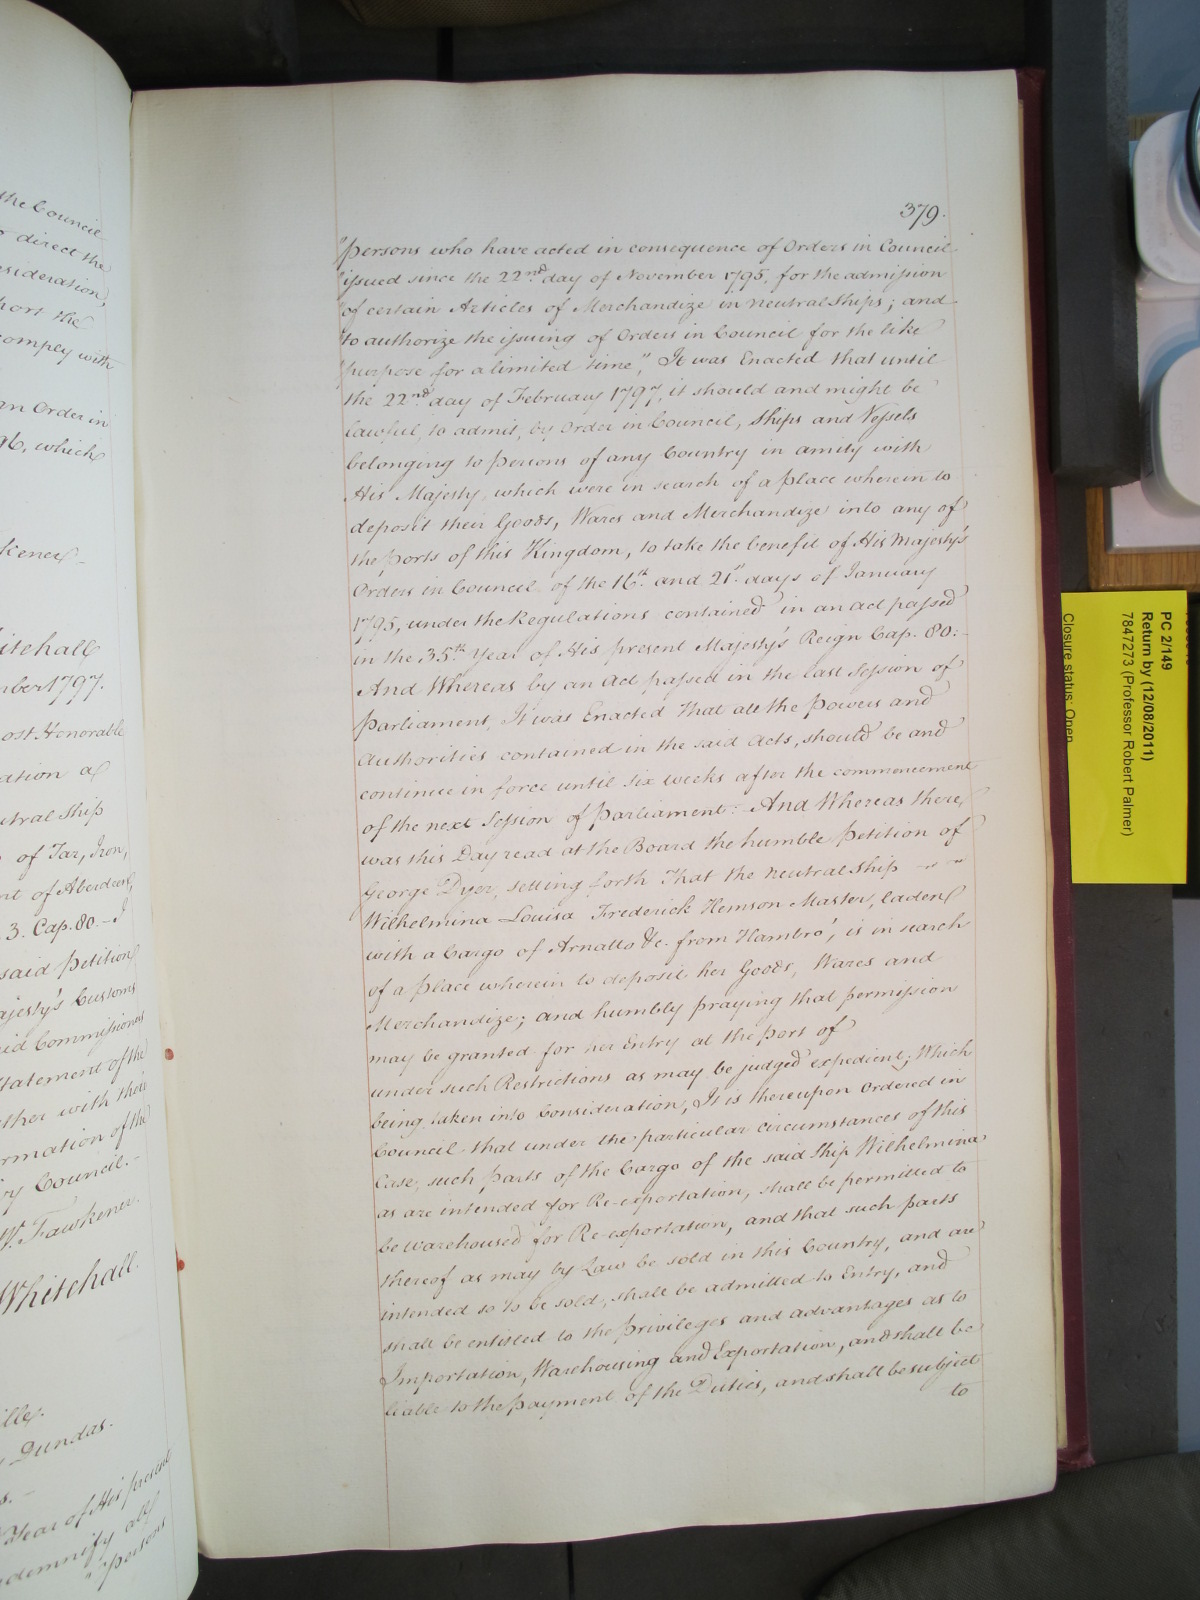 the Council
direct the
consideration,
comply with
an Order in
96, which
Whitehall
1797.
Most Honorable
Neutral Ship
of Tar, Iron,
of Aberdeen,
3. Cap. 80 - I
said Petition
Majesty's Customs
said Commissioners
Statement of the
together with their
of the
Council. -
W. Fawkener.
Whitehall.
Dundas.
Year of His present
indemnify all
"persons
379.
"persons who have acted in consequence of Orders in Council
"issued since the 22nd day of November 1795, for the admission
"of certain Articles of Merchandize in neutral Ships; and
"to authorize the issuing of Orders in Council for the like
"purpose for a limited time," It was Enacted that until
the 22nd day of February 1797, it should and might be
lawful, to admit, by Order in Council, Ships and Vessels
belonging to Persons of any Country in amity with
His Majesty, which were in search of a place wherein to
deposit their Goods, Wares and Merchandize into any of
the ports of this Kingdom, to take the benefit of His Majesty's
Orders in Council of the 16th. and 21st. days of January
1795, under the Regulations contained in an act passed
in the 35th Year of His present Majesty's Reign Cap. 80: -
And Whereas by an Act passed in the last Session of
Parliament, It was Enacted That all the Powers and
Authorities contained in the said Acts, should be and
continue in force until six weeks after the commencement
of the next Session of Parliament: And Whereas there
was this Day read at the Board the humble Petition of
George Dyer, setting forth That the neutral Ship
Wilhelmina Louisa Frederick Hemson Master, laden
with a Cargo of Arnatto &c. from Hambro', is in search
of a place wherein to deposit her Goods, Wares and
Merchandize; and humbly praying that permission
may be granted for her Entry at the port of
under such Restrictions as may be judged expedient; Which
being taken into Consideration, It is thereupon Ordered in
Council that under the particular circumstances of this
Case, such parts of the Cargo of the said Ship Wilhelmina
as are intended for Re-exportation, shall be permitted to
be warehoused for Re-exportation, and that such parts
thereof as may by Law be sold in this Country, and are
intended so to be sold, shall be admitted to Entry, and
shall be entitled to the privileges and advantages as to
Importation, Warehousing and Exportation, and shall be
liable to the payment of the Duties, and shall be subject
to
PC 2/149
Return by (12/08/2011)
7847273 (Professor Robert Palmer)
Closure status: Open